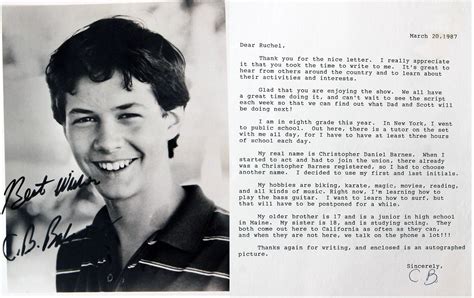 Best Wishes
C. B. Barnes
March 20, 1987
Dear Ruchel,
Thank you for the nice letter. I really appreciate
it that you took the time to write to me. It's great to
hear from others around the country and to learn about
their activities and interests.
Glad that you are enjoying the show. We all have
a great time doing it, and can't wait to see the script
each week so that we can find out what Dad and Scott will
be doing next.
I am in eighth grade this year. In New York, I went
to public school. Out here, there is a tutor on the set
with me all day, for I have to have at least three hours
of school each day.
My real name is Christopher Daniel Barnes. When I
started to act and had to join the union, there already
was a Christopher Barnes registered, so I had to choose
another name. I decided to use my first and last initials.
My hobbies are biking, karate, magic, movies, reading,
and all kinds of music. Right now, I'm learning how to
play the bass guitar. I want to learn how to surf, but
that will have to be postponed for a while.
My older brother is 17 and is a junior in high school
in Maine. My sister is 18, and is studying acting. They
both come out here to California as often as they can,
and when they are not here, we talk on the phone a lot!!!
Thanks again for writing, and enclosed is an autographed
picture.
Sincerely,
C.B.